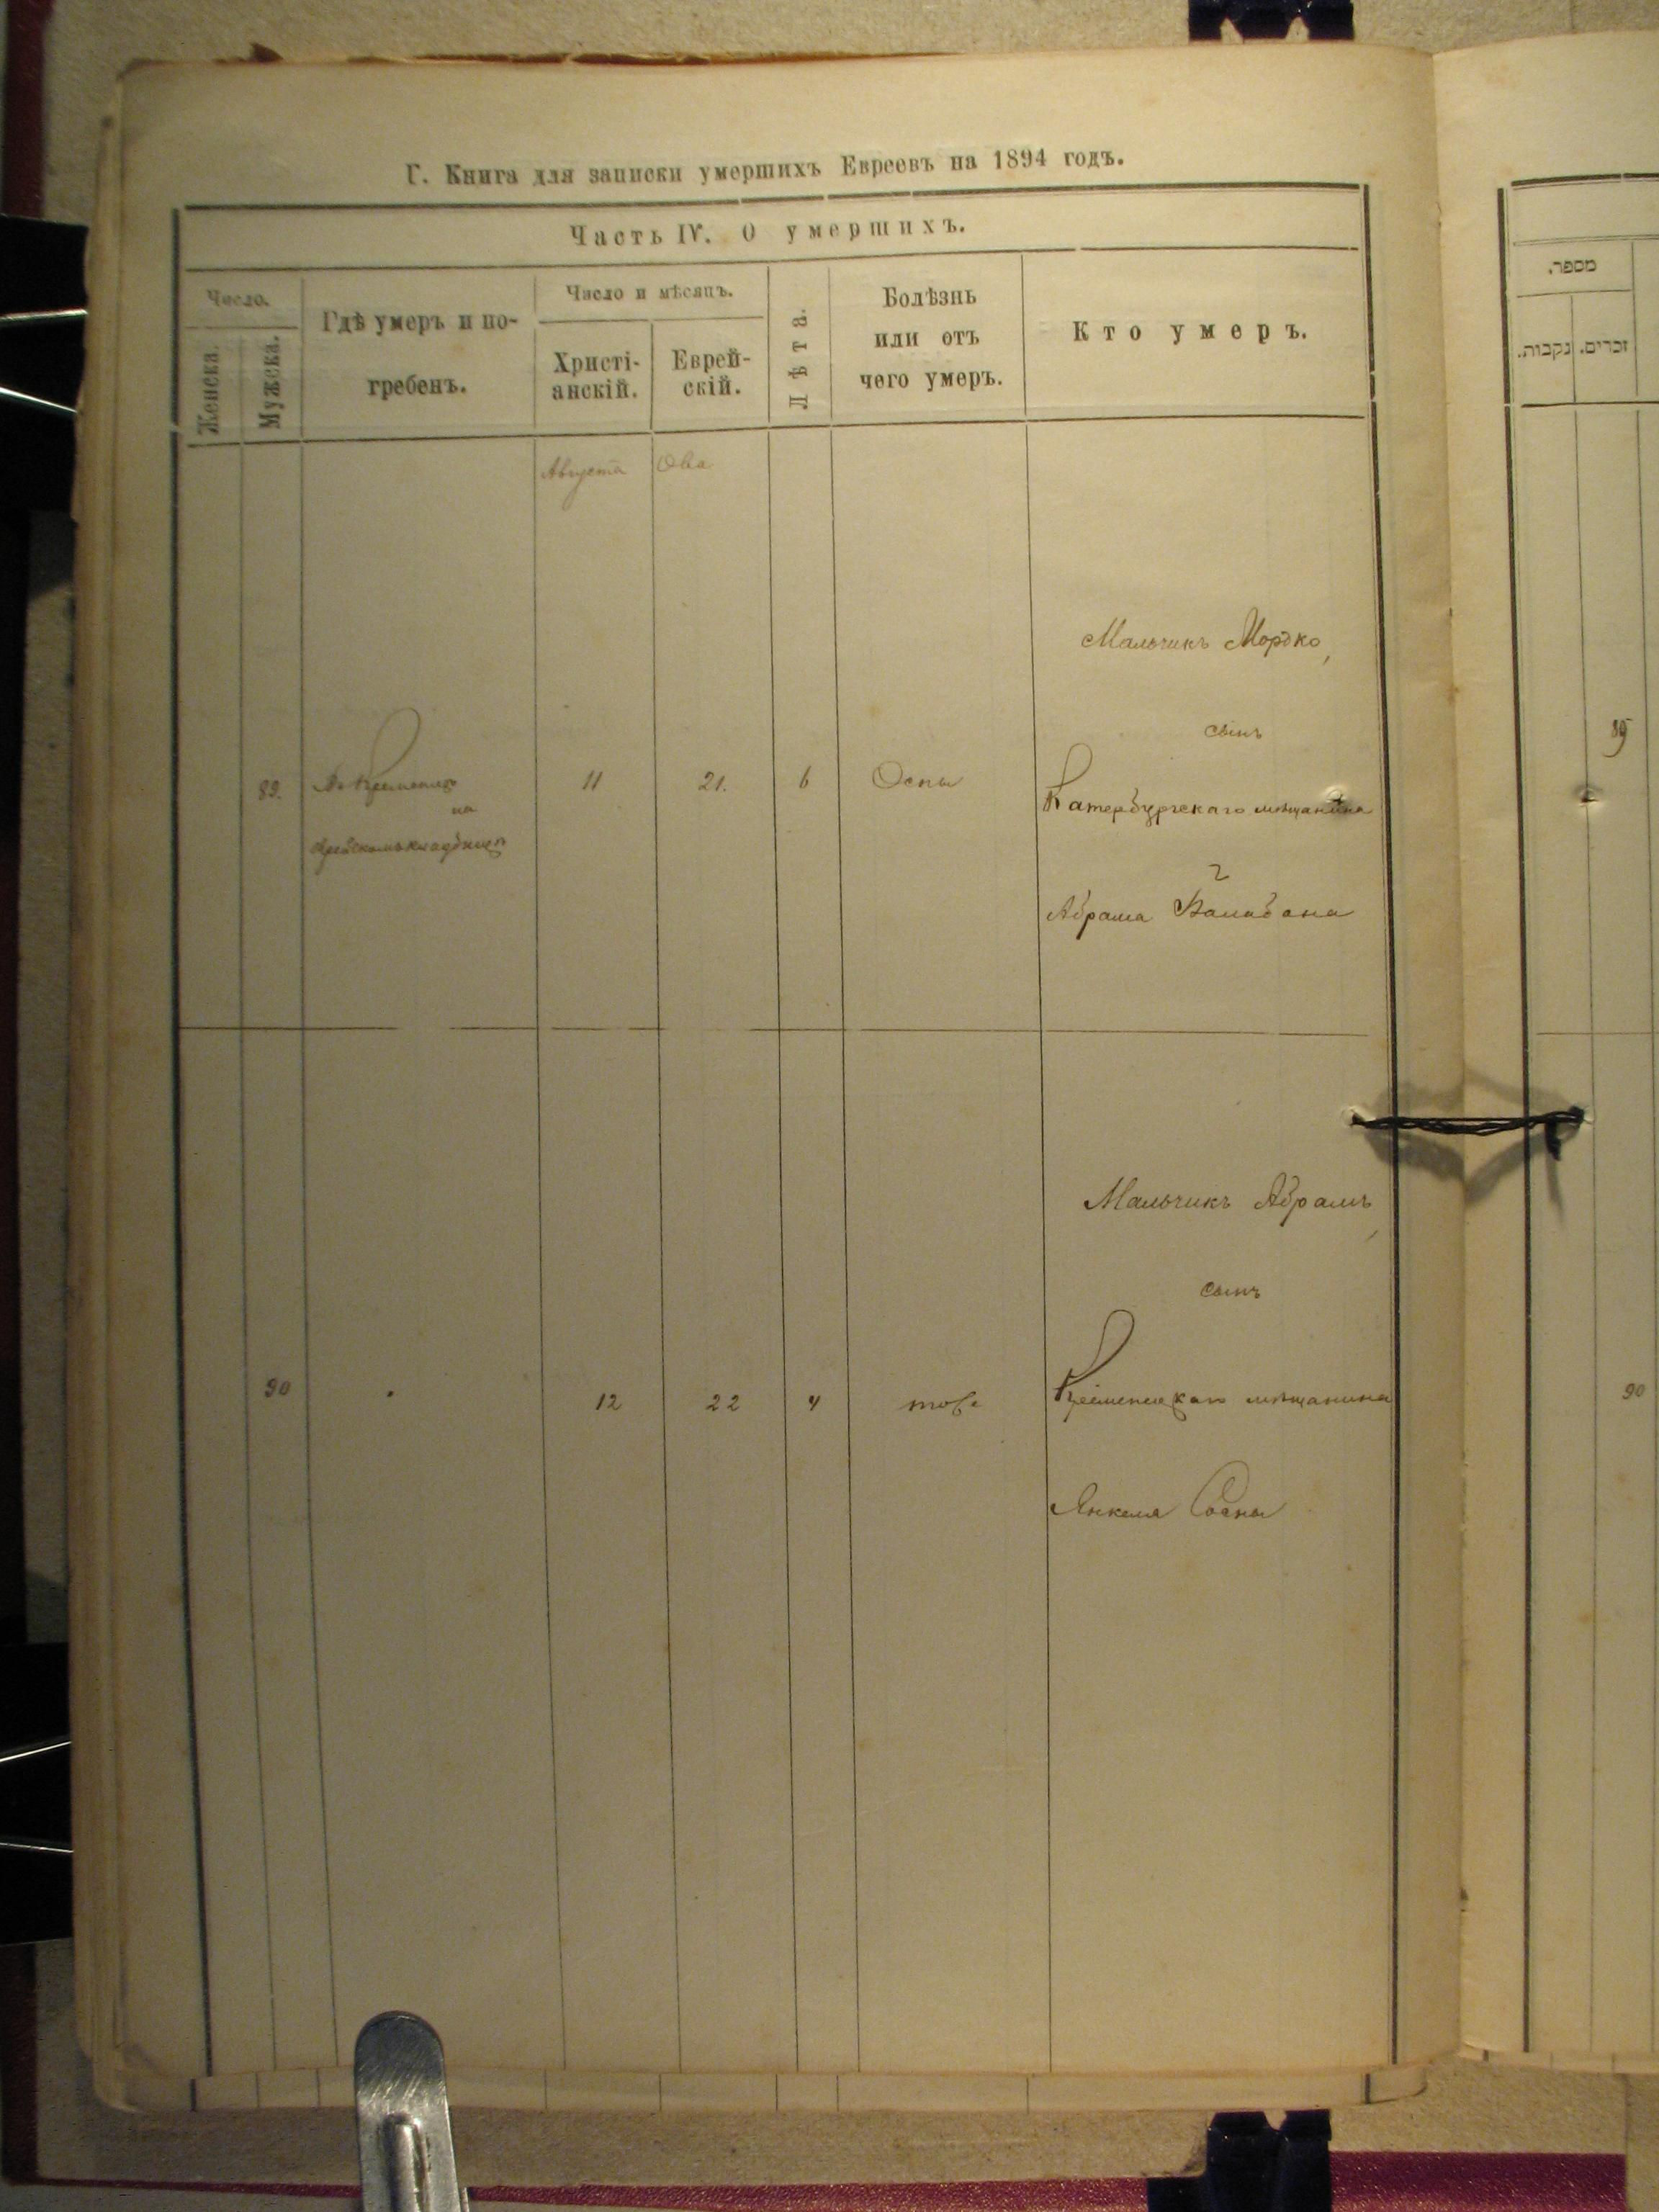 Г. Книга для записки умершихъ Евреевъ на 1894 годъ.
Часть IV. О умершихъ.
Число.
Женска.
Мужска.
Гдѣ умеръ и по-
гребенъ.
Число и мѣсяцъ.
Христі-
анскій.
Еврей-
скій.
Лѣта.
Болѣзнь
или отъ
чего умеръ.
Кто умеръ.
Августа
Ова
Мальчикъ Мордко,
сынъ
89.
Въ Кременцѣ
на
Еврейскомъ кладбищѣ
11
21.
6
Оспы
Катербургскаго мѣщанина
Абрама
Мальчикъ Абрамъ,
сынъ
90
12
22
4
тоже
Кременецкаго мѣщанина
Янкеля Сосны
מספר.
נקבות.
זכרים.
89
90